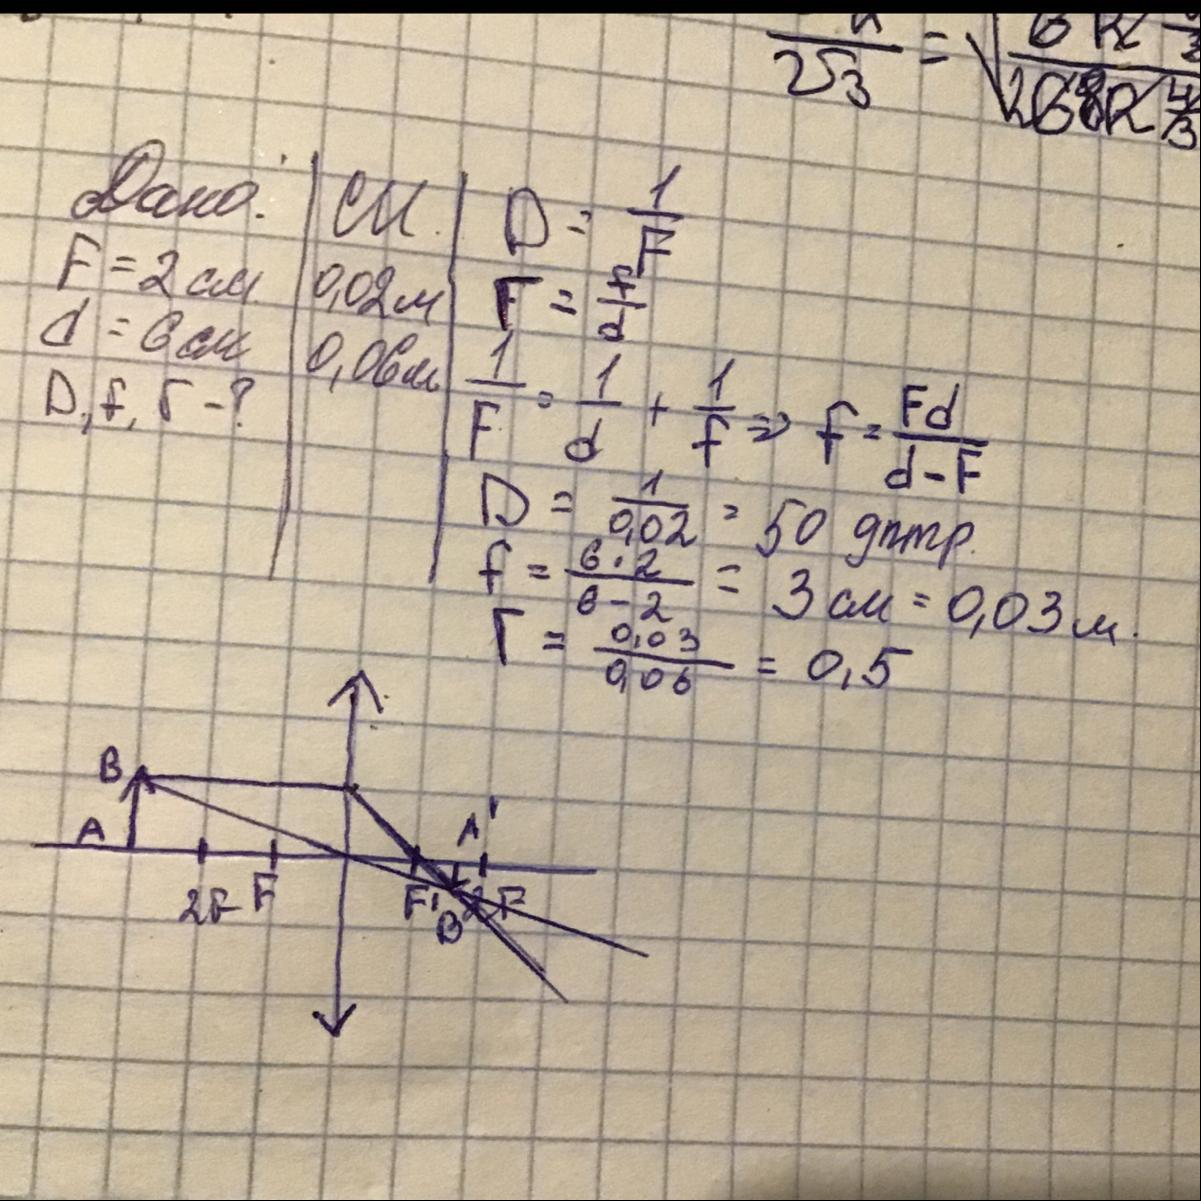 2√3 = √
2G8R 4/3
Дано.
F = 2 см
d = 6 см
D, f, Г - ?
СИ.
0,02 м
0,06 м
D = 1/F
Г = f/d
1/F = 1/d + 1/f => f = Fd/d-F
D = 1/0,02 = 50 дптр.
f = 6·2/6-2 = 3 см = 0,03 м.
Г = 0,03/0,06 = 0,5
B
A
A'
2F F
F' 2F
B'